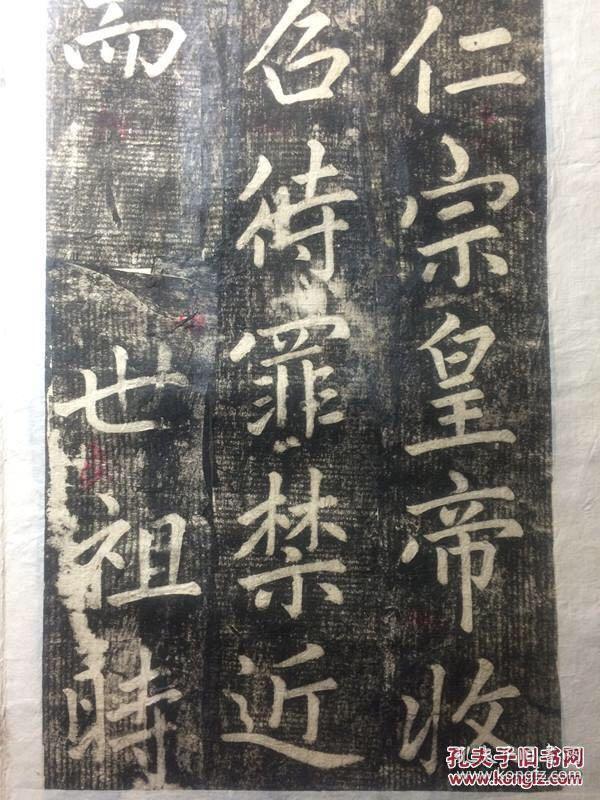 仁宗皇帝收
召待罪禁近
而世祖時
孔夫子旧书网
www.kongfz.com